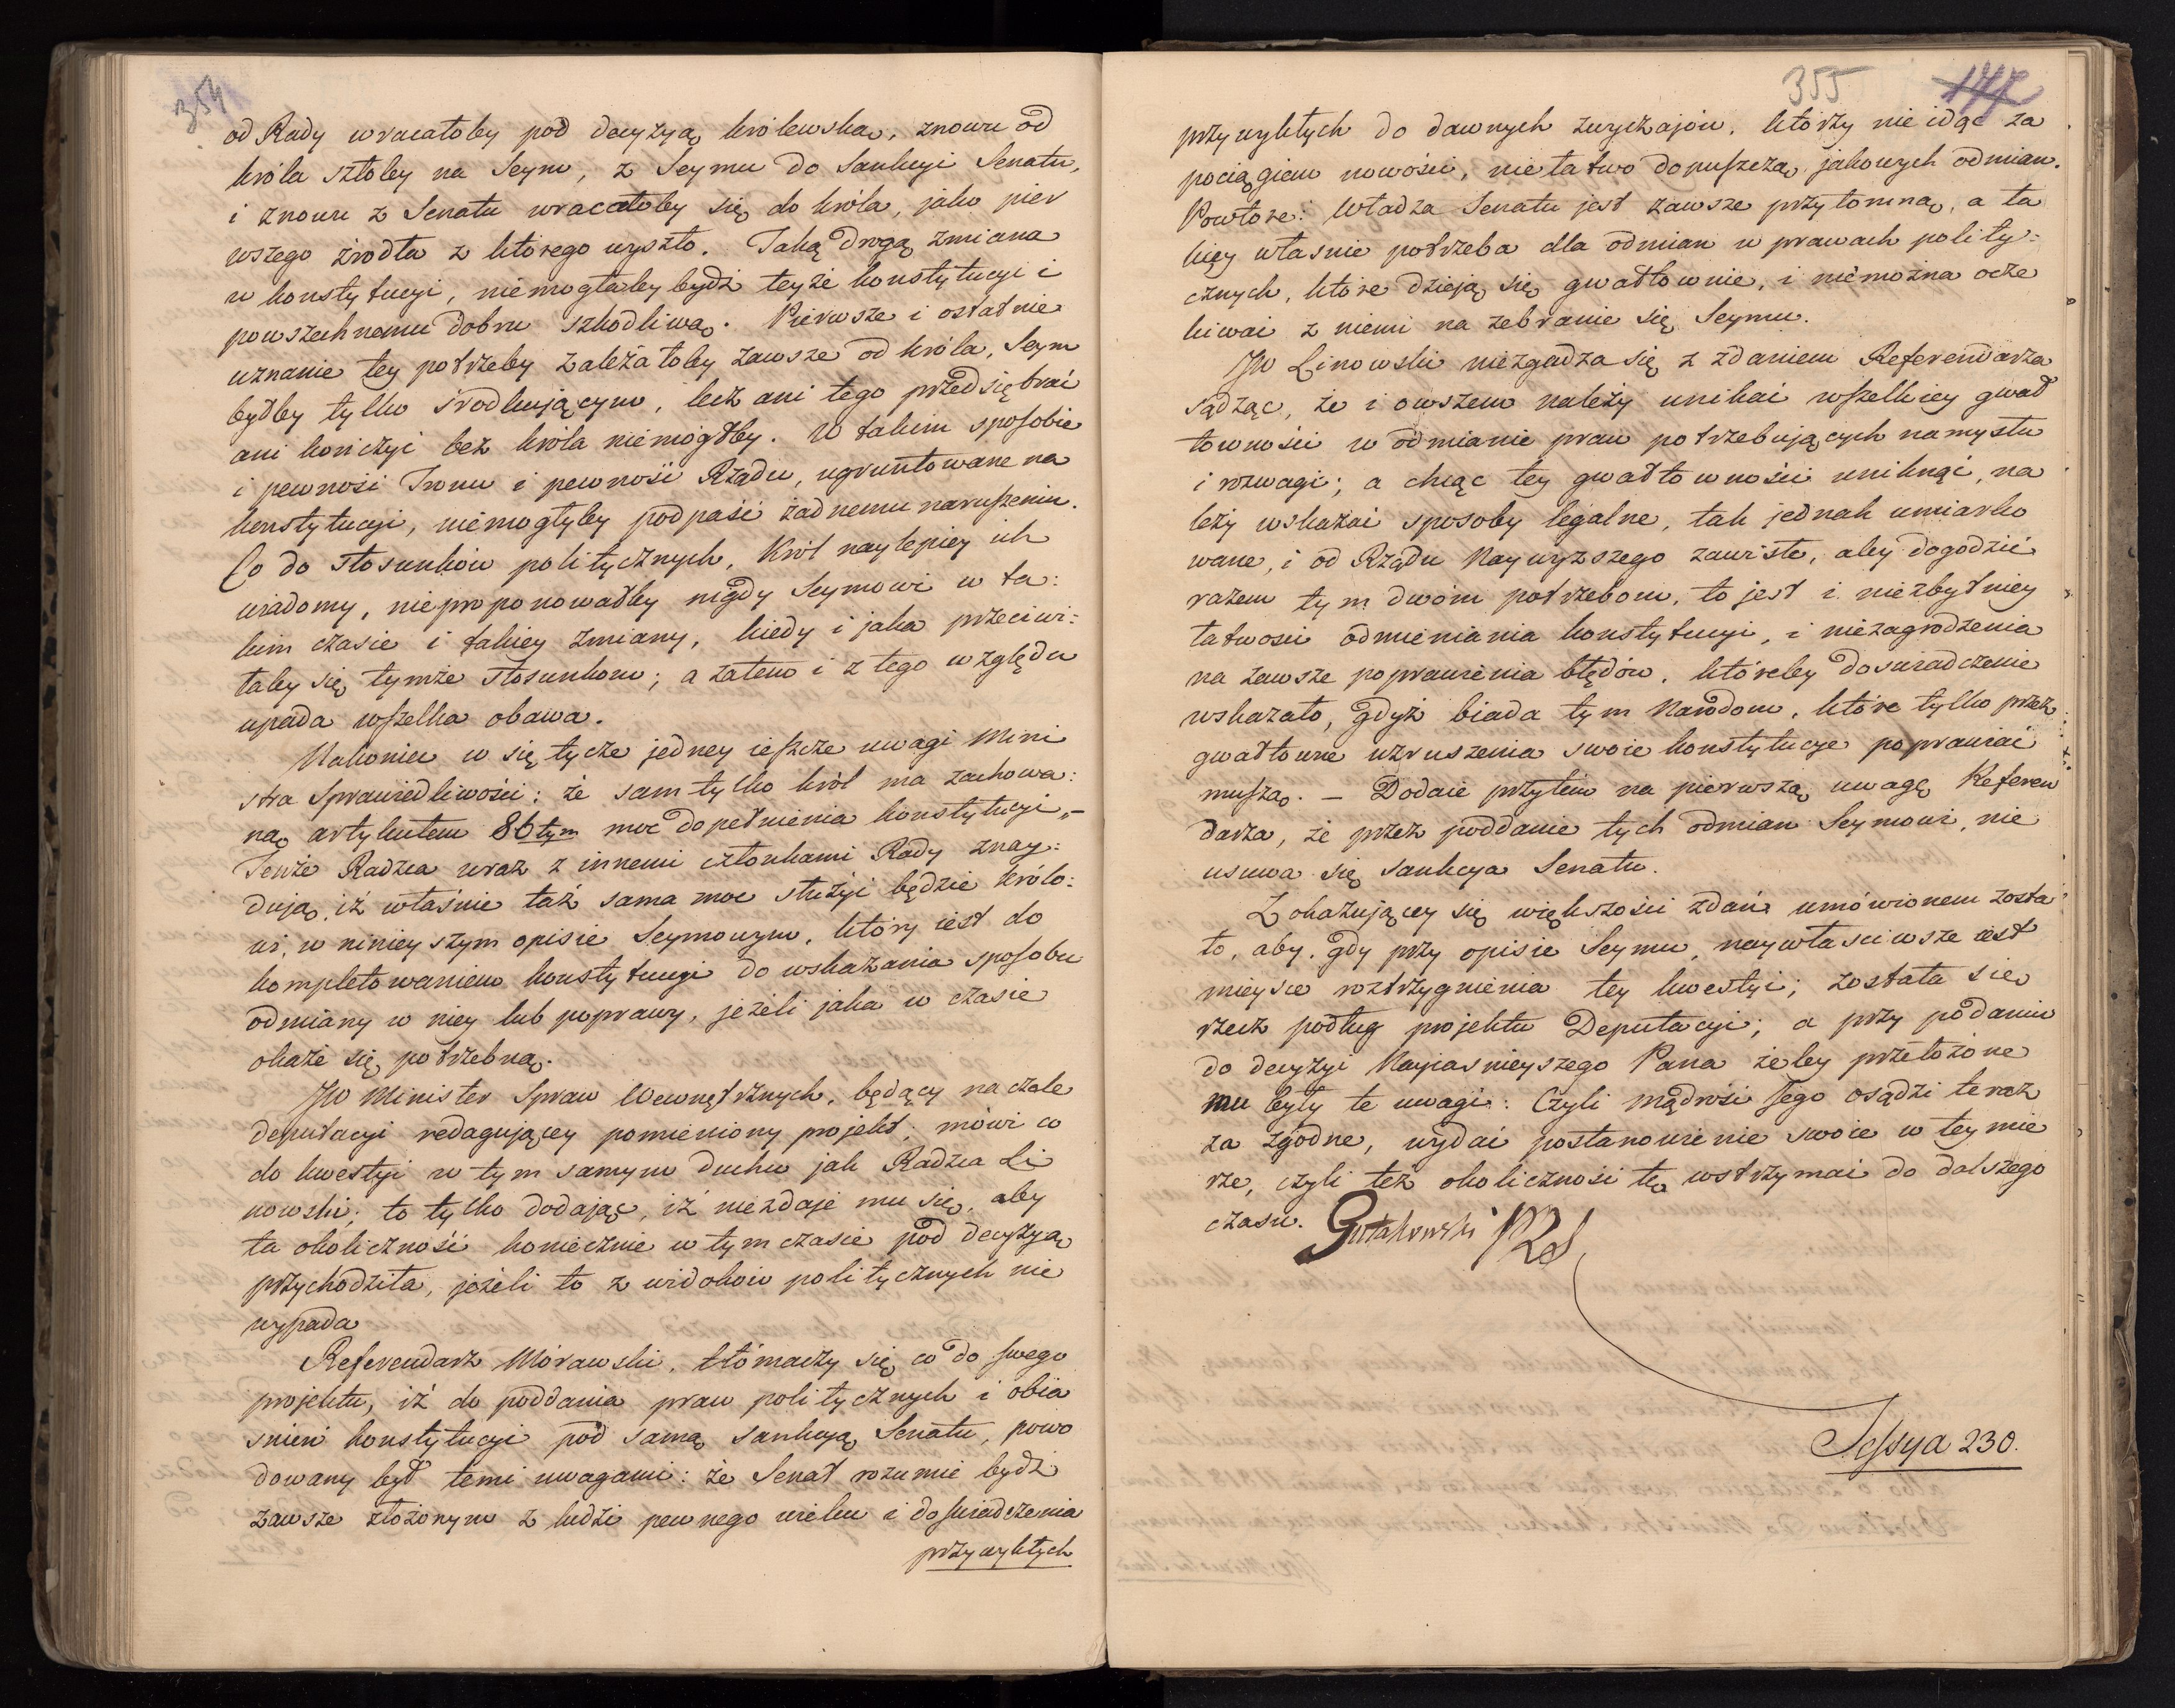 354
od Rady wracałoby pod decyzyą królewską, znowu od
króla szłoby na Seym, z Seymu do Sankcyi Senatu,
i znowu z Senatu wracałoby się do króla, jako pier
wszego źrodła z którego wyszło. Taką drogą zmiana
w konstytucyi, niemogłaby bydź teyże konstytucyi i
powszechnemu dobru szkodliwą. Pierwsze i ostatnie
uznanie tey potrzeby zależałoby zawsze od króla, Seym
byłby tylko srodkującym, lecz ani tego przedsiębrać
ani kończyć bez króla niemógłby. W takim sposobie
i pewność Tronu i pewność Rządu, ugruntowane na
konstytucyi, niemogłyby podpaść żadnemu naruszeniu.
Co do stosunków politycznych, Król naylepiey ich
wiadomy, nieproponowałby nigdy Seymowi w ta:
kim czasie i takiey zmiany, kiedy i jaka przeciwi:
łaby się tymże stosunkom; a zatem i z tego względu
upada wszelka obawa.
Nakoniec w się tycze jedney ieszcze uwagi Mini
stra Sprawiedliwości: że sam tylko król ma zachowa:
ną artykułem 86tym moc dopełnienia konstytucyi,-
Tenże Radzca wraz z innemi członkami Rady znay:
dują, iż właśnie taż sama moc służyć będzie królo:
wi, w ninieyszym opisie Seymowym, który iest do
kompletowaniem konstytucyi do wskazania sposobu
odmiany w niey lub poprawy, jeżeli jaka w czasie
okaże się potrzebną.
JW Minister Spraw Wewnętrznych, będący na czele
deputacyi redagującey pomieniony projekt; mówi co
do kwestyi w tym samym duchu jak Radzca Li
nowski; to tylko dodając, iż niezdaje mu się, aby
ta okoliczność koniecznie w tym czasie pod decyzyą
przychodziła, jeżeli to z widoków politycznych nie
wypada
Referendarz Morawski, tłómaczy się co do swego
projektu, iż do poddania praw politycznych i obia
śnień konstytucyi pod samą sankcyą Senatu, powo
dowany był temi uwagami: że Senat rozumie bydź
zawsze złożonym z ludzi pewnego wieku i doświadczenia
przywykłych
355
przywykłych do dawnych zwyczajów, którzy nie idąc za
pociągiem nowości, niełatwo dopuszczą jakowych odmian.
Powtore: Władza Senatu jest zawsze przytomną, a ta
kiey właśnie potrzeba dla odmian w prawach polity:
cznych, które dzieją się gwałtownie, i niemożna ocze
kiwać z niemi na zebranie się Seymu.
JW Linowski niezgadza się z zdaniem Referendarza
sądząc, że i owszem należy unikać wszelkiey gwał
towności w odmianie praw potrzebujących namysłu
i rozwagi; a chcąc tey gwałtowności uniknąć, na
leży wskazać sposoby legalne, tak jednak umiarko
wane, i od Rządu Naywyższego zawisłe, aby dogodzić
razem tym dwóm potrzebom, to jest i niezbytniey
łatwości odmieniania konstytucyi, i niezagrodzenia
na zawsze poprawienia błędów, któreby doświadczenie
wskazało, gdyż biada tym Narodom, które tylko przez
gwałtowne wzruszenia swoie konstytucye poprawiać
muszą. — Dodaie przytem na pierwszą uwagę Referen
darza, że przez poddanie tych odmian Seymowi, nie
usuwa się sankcya Senatu.
Z okazującey się większości zdań umówionem zosta
ło, aby, gdy przy opisie Seymu, naywłaściwsze iest
mieysce roztrzygnienia tey kwestyi; została się
rzecz podług projektu Deputacyi; a przy podaniu
do decyzyi Nayiaśnieyszego Pana żeby przełożone
mu były te uwagi: Czyli mądrość Jego osądzi teraz
za zgodne, wydać postanowienie swoie w tey mie
rze, czyli też okoliczność tę wstrzymać do dalszego
czasu. Gutakowski PRS
Sessya 230.